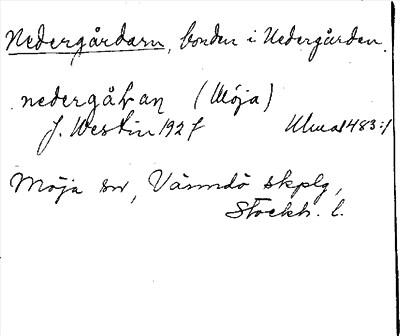 Nedergårdarn, bonden i Nedergården.
nedergåɫ̣an (Möja)
J. Westin 1927 Ulma 1483:1
Möja sn, Värmdö skplg,
Stockh. l.